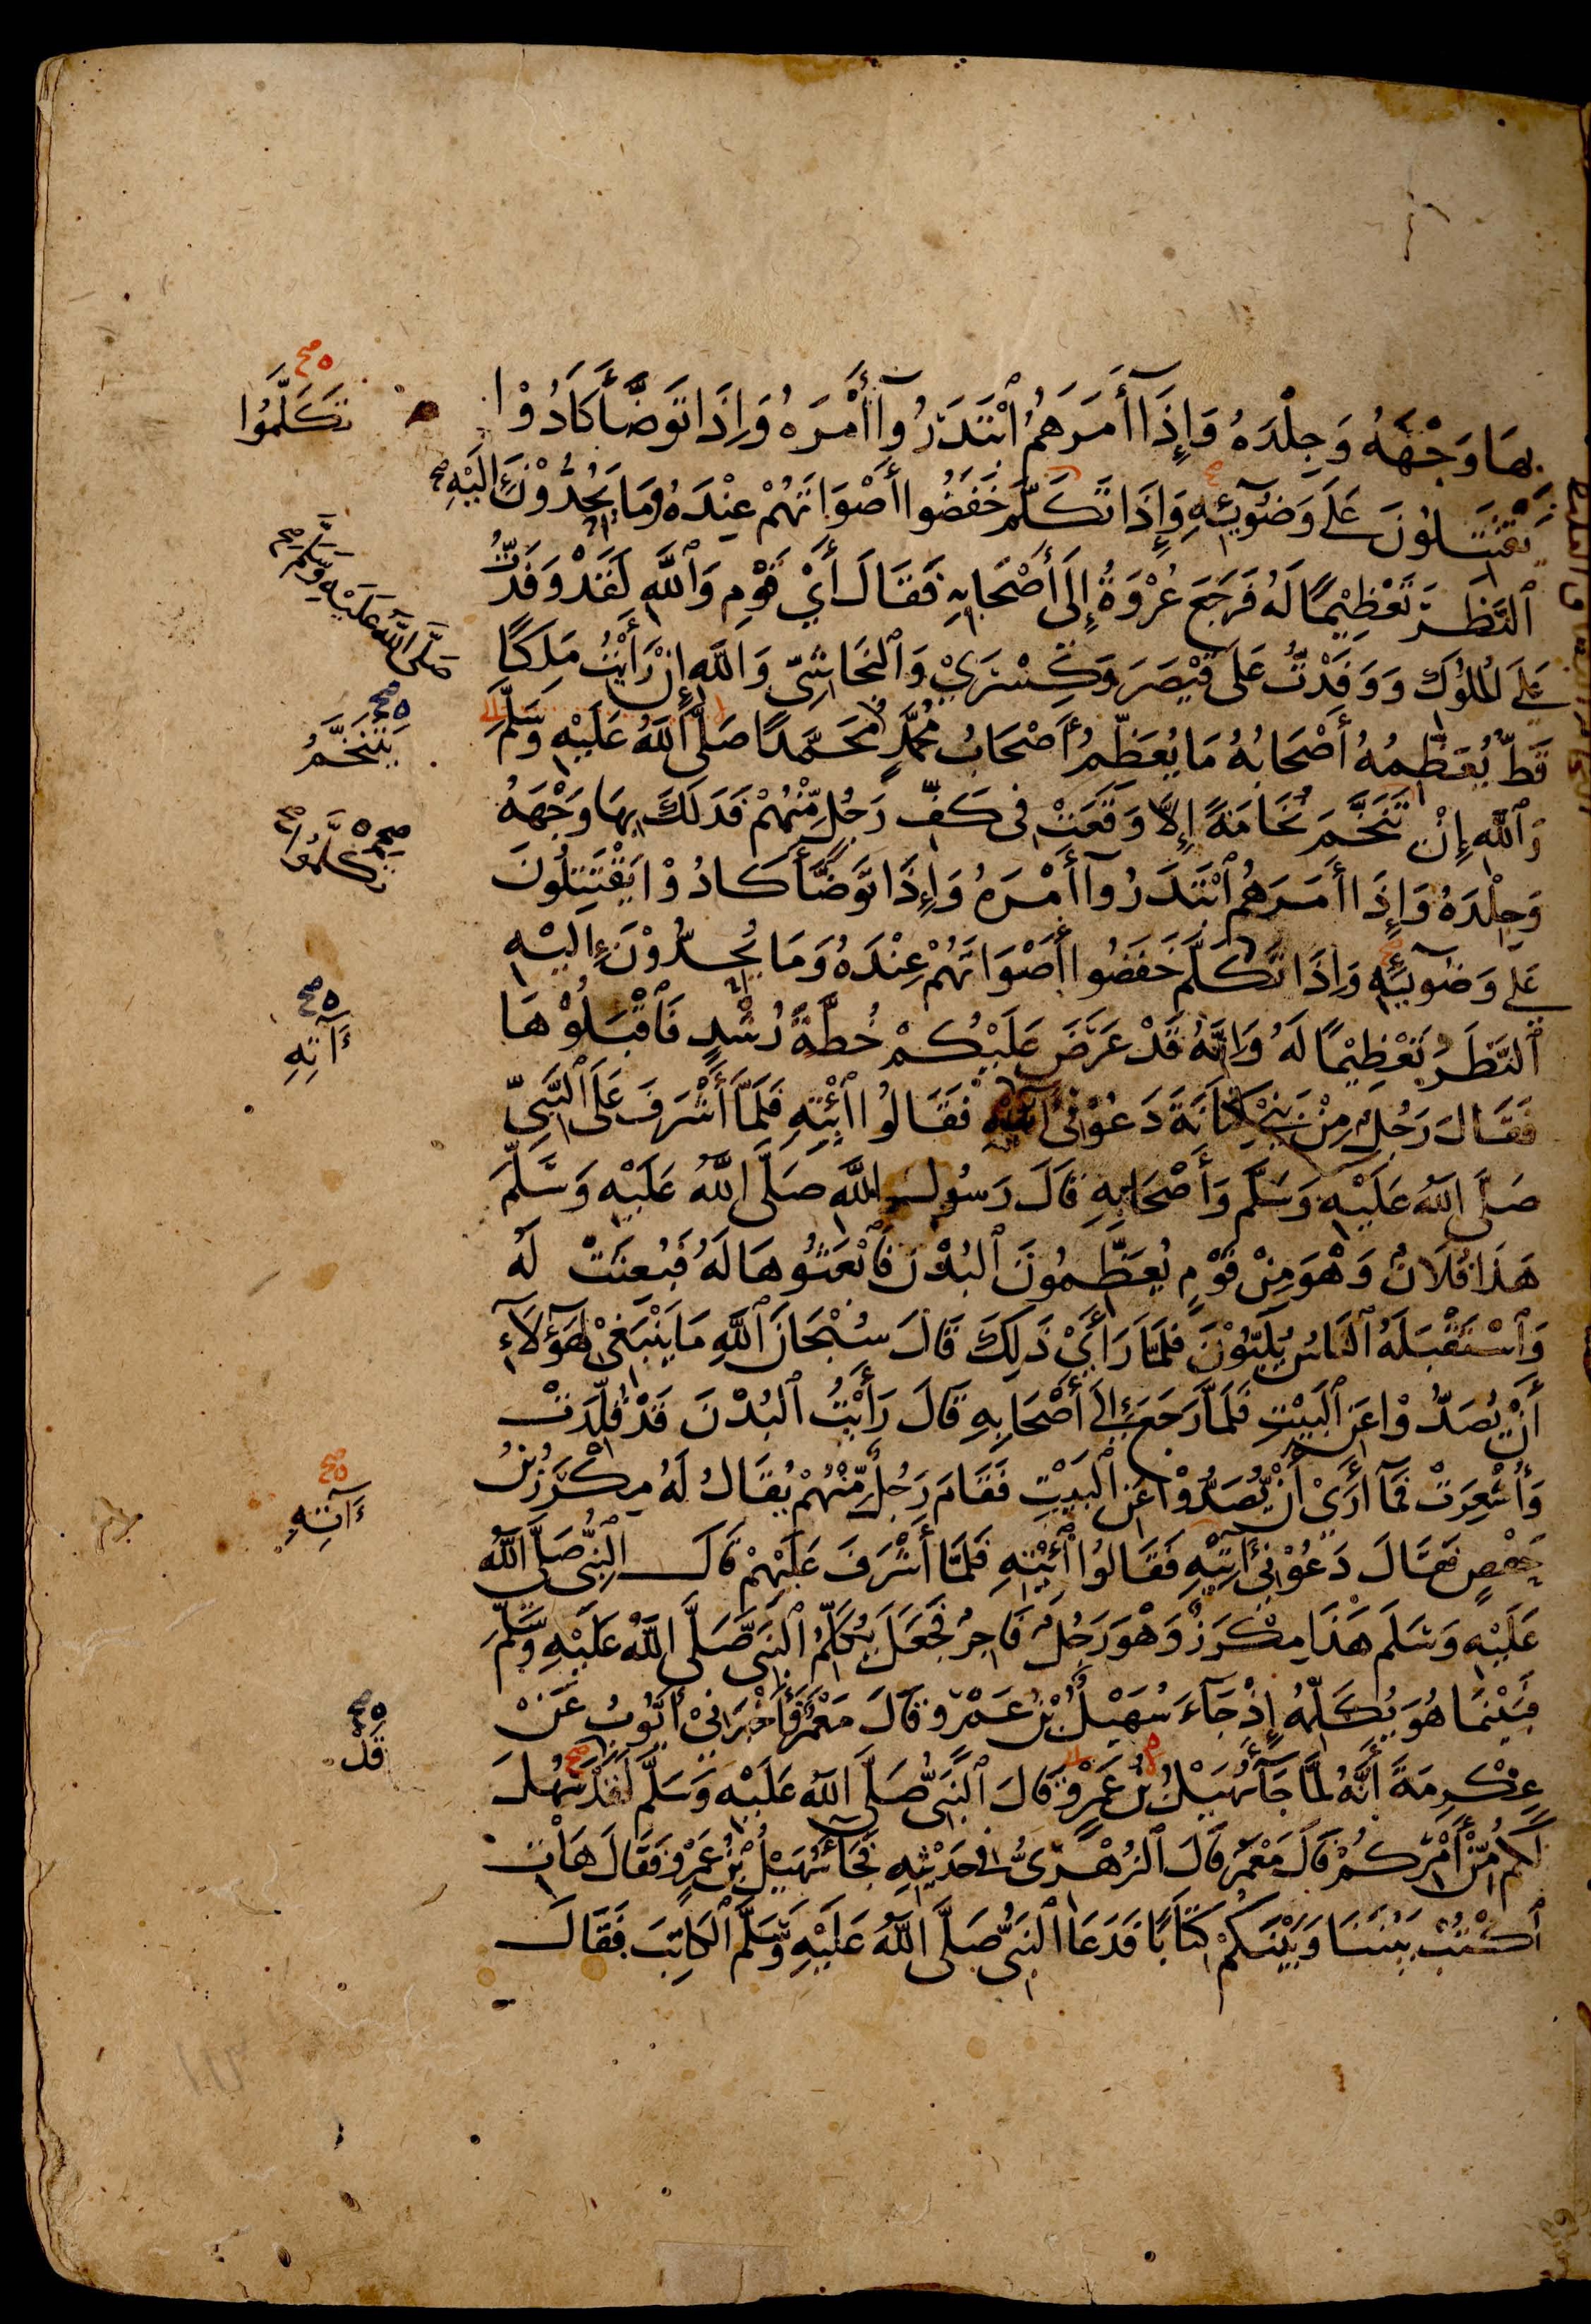 بِهَا وَجْهَهُ وَجِلْدَهُ وَإِذَآ أَمَرَهُمُ ٱبْتَدَرُوآ أَمْرَهُ وَإِذَا تَوَضَّأَ كَادُوْا
يَقْتَتِلُونَ عَلَى وَضُوٓئِهِ وَإِذَا تَكَلَّمَ خَفَضُوا أَصْوَاتَهُمْ عِنْدَهُ وَمَا يُحِدُّوْنَ إِلَيْهِ
ٱلنَّظَرَ تَعْظِيْمًا لَهُ فَرَجَعَ عُرْوَةُ إِلَى أَصْحَابِهِ فَقَالَ أَيْ قَوْمِ وَٱللَّهِ لَقَدْ وَفَدْتُّ
عَلَى لْمُلُوْكِ وَوَفَدْتُّ عَلَى قَيْصَرَ وَكِسْرَيْ وَٱلنَّجَاشِيِّ وَاللَّهِ إِنْ رَّأَيْتُ مَلِكًا
قَطُّ يُعَظِّمُهُ أَصْحَابُهُ مَا يُعَظِّمُ أَصْحَابُ مُحَمَّدٍ مُحَمَّدًا صَلَّى اللَّهُ عَلَيْهِ وَسَلَّمَ
وَٱللَّهِ إِنْ تَنَخَّمَ نُخَامَةً إِلَّا وَقَعَتْ فِى كَفِّ رَجُلٍ مِّنْهُمْ فَدَلَكَ بِهَا وَجْهَهُ
وَجِلْدَهُ وَإِذَا أَمَرَهُمُ ٱبْتَدَرُوآ أَمْرَهُ وَإِذَا تَوَضَّأَ كَادُوْا يَقْتَتِلُونَ
عَلَى وَضُوٓئِهِ وَإِذَا تَكَلَّمَ خَفَضُوا أَصْوَاتَهُمْ عِنْدَهُ وَمَا يُحِدُّوْنَ إِلَيْهِ
ٱلنَّظَرَ تَعْظِيْمًا لَهُ وَإِنَّهُ قَدْ عَرَضَ عَلَيْكُمْ خُطَّةَ رُشْدٍ فَٱقْبَلُوْهَا
فَقَالَ رَجُلٌ مِنْ بَنِيْ كِنَانَةَ دَعُوْنِى آتِيْهِ فَقَالُوا ٱئْتِهِ فَلَمَّا أَشْرَفَ عَلَى ٱلنَّبِيِّ
صَلَّى اللَّهُ عَلَيْهِ وَسَلَّمَ وَأَصْحَابِهِ قَالَ رَسُولُ اللَّهِ صَلَّى اللَّهُ عَلَيْهِ وَسَلَّمَ
هَذَا فُلَانٌ وَهْوَ مِنْ قَوْمٍ يُعَظِّمُونَ ٱلْبُدْنَ فَٱبْعَثُوهَا لَهُ فَبُعِثَتْ لَهُ
وَٱسْتَقْبَلَهُ ٱلنَّاسُ يُلَبُّوْنَ فَلَمَّا رَأَيْ ذَلِكَ قَالَ سُبْحَانَ ٱللَّهِ مَا يَنْبَغِيْ لِهَؤُلَآءِ
أَنْ يُصَدُّوْا عَنِ ٱلْبَيْتِ فَلَمَّا رَجَعَ إِلَى أَصْحَابِهِ قَالَ رَأَيْتُ ٱلْبُدْنَ قَدْ قُلِّدَتْ
وَأُشْعِرَتْ فَمَآ أَرَىْ أَنْ يُّصَدُّوْا عَنِ ٱلْبَيْتِ فَقَامَ رَجُلٌ مِّنْهُمْ يُقَالُ لَهُ مِكْرَزُ بْنُ
حَفْصٍ فَقَالَ دَعُوْنِى آتِيْهِ فَقَالُوا ٱئْتِهِ فَلَمَّا أَشْرَفَ عَلَيْهِمْ قَالَ النَّبِىُّ صَلَّى اللَّهُ
عَلَيْهِ وَسَلَّمَ هَذَا مِكْرَزٌ وَهْوَ رَجُلٌ فَاجِرٌ فَجَعَلَ يُكَلِّمُ ٱلنَّبِىَّ صَلَّى اللَّهُ عَلَيْهِ وَسَلَّمَ
فَبَيْنَمَا هُوَ يُكَلِّمُهُ إِذْ جَآءَ سُهَيْلُ بْنُ عَمْرٍو قَالَ مَعْمَرٌ فَأَخْبَرَنِىْ أَيُّوْبُ عَنْ
عِكْرِمَةَ أَنَّهُ لَمَّا جَآءَ سُهَيْلُ بْنُ عَمْرٍو قَالَ ٱلنَّبِىُّ صَلَّى اللَّهُ عَلَيْهِ وَسَلَّمَ لَقَدْ سَهُلَ
لَكُمْ مِّنْ أَمْرِكُمْ قَالَ مَعْمَرٌ قَالَ ٱلزُّهْرِىُّ فِى حَدِيْثِهِ فَجَآءَ سُهَيْلُ بْنُ عَمْرٍو فَقَالَ هَاتِ
ٱكْتُبْ بَيْنَنَا وَبَيْنَكُمْ كِتَابًا فَدَعَا ٱلنَّبِىُّ صَلَّى اللَّهُ عَلَيْهِ وَسَلَّمَ ٱلْكَاتِبَ فَقَالَ
ه صح
تَكَلَّمُوا
صَلَّى اللَّهُ عَلَيْهِ وَسَلَّمَ صح
ه صح
يَتَنَخَّمُ
صح
تَكَلَّمُوا
ه صح
ءَآتِهِ
ه صح
ءَآتِهِ
ه صح
قَدْ